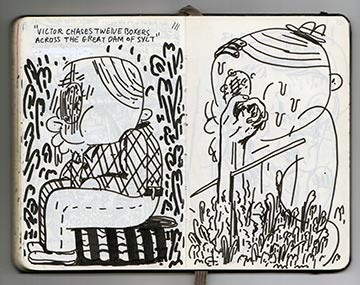 "VICTOR CHASES TWELVE BOXERS
ACROSS THE GREAT DAM OF SYLT"